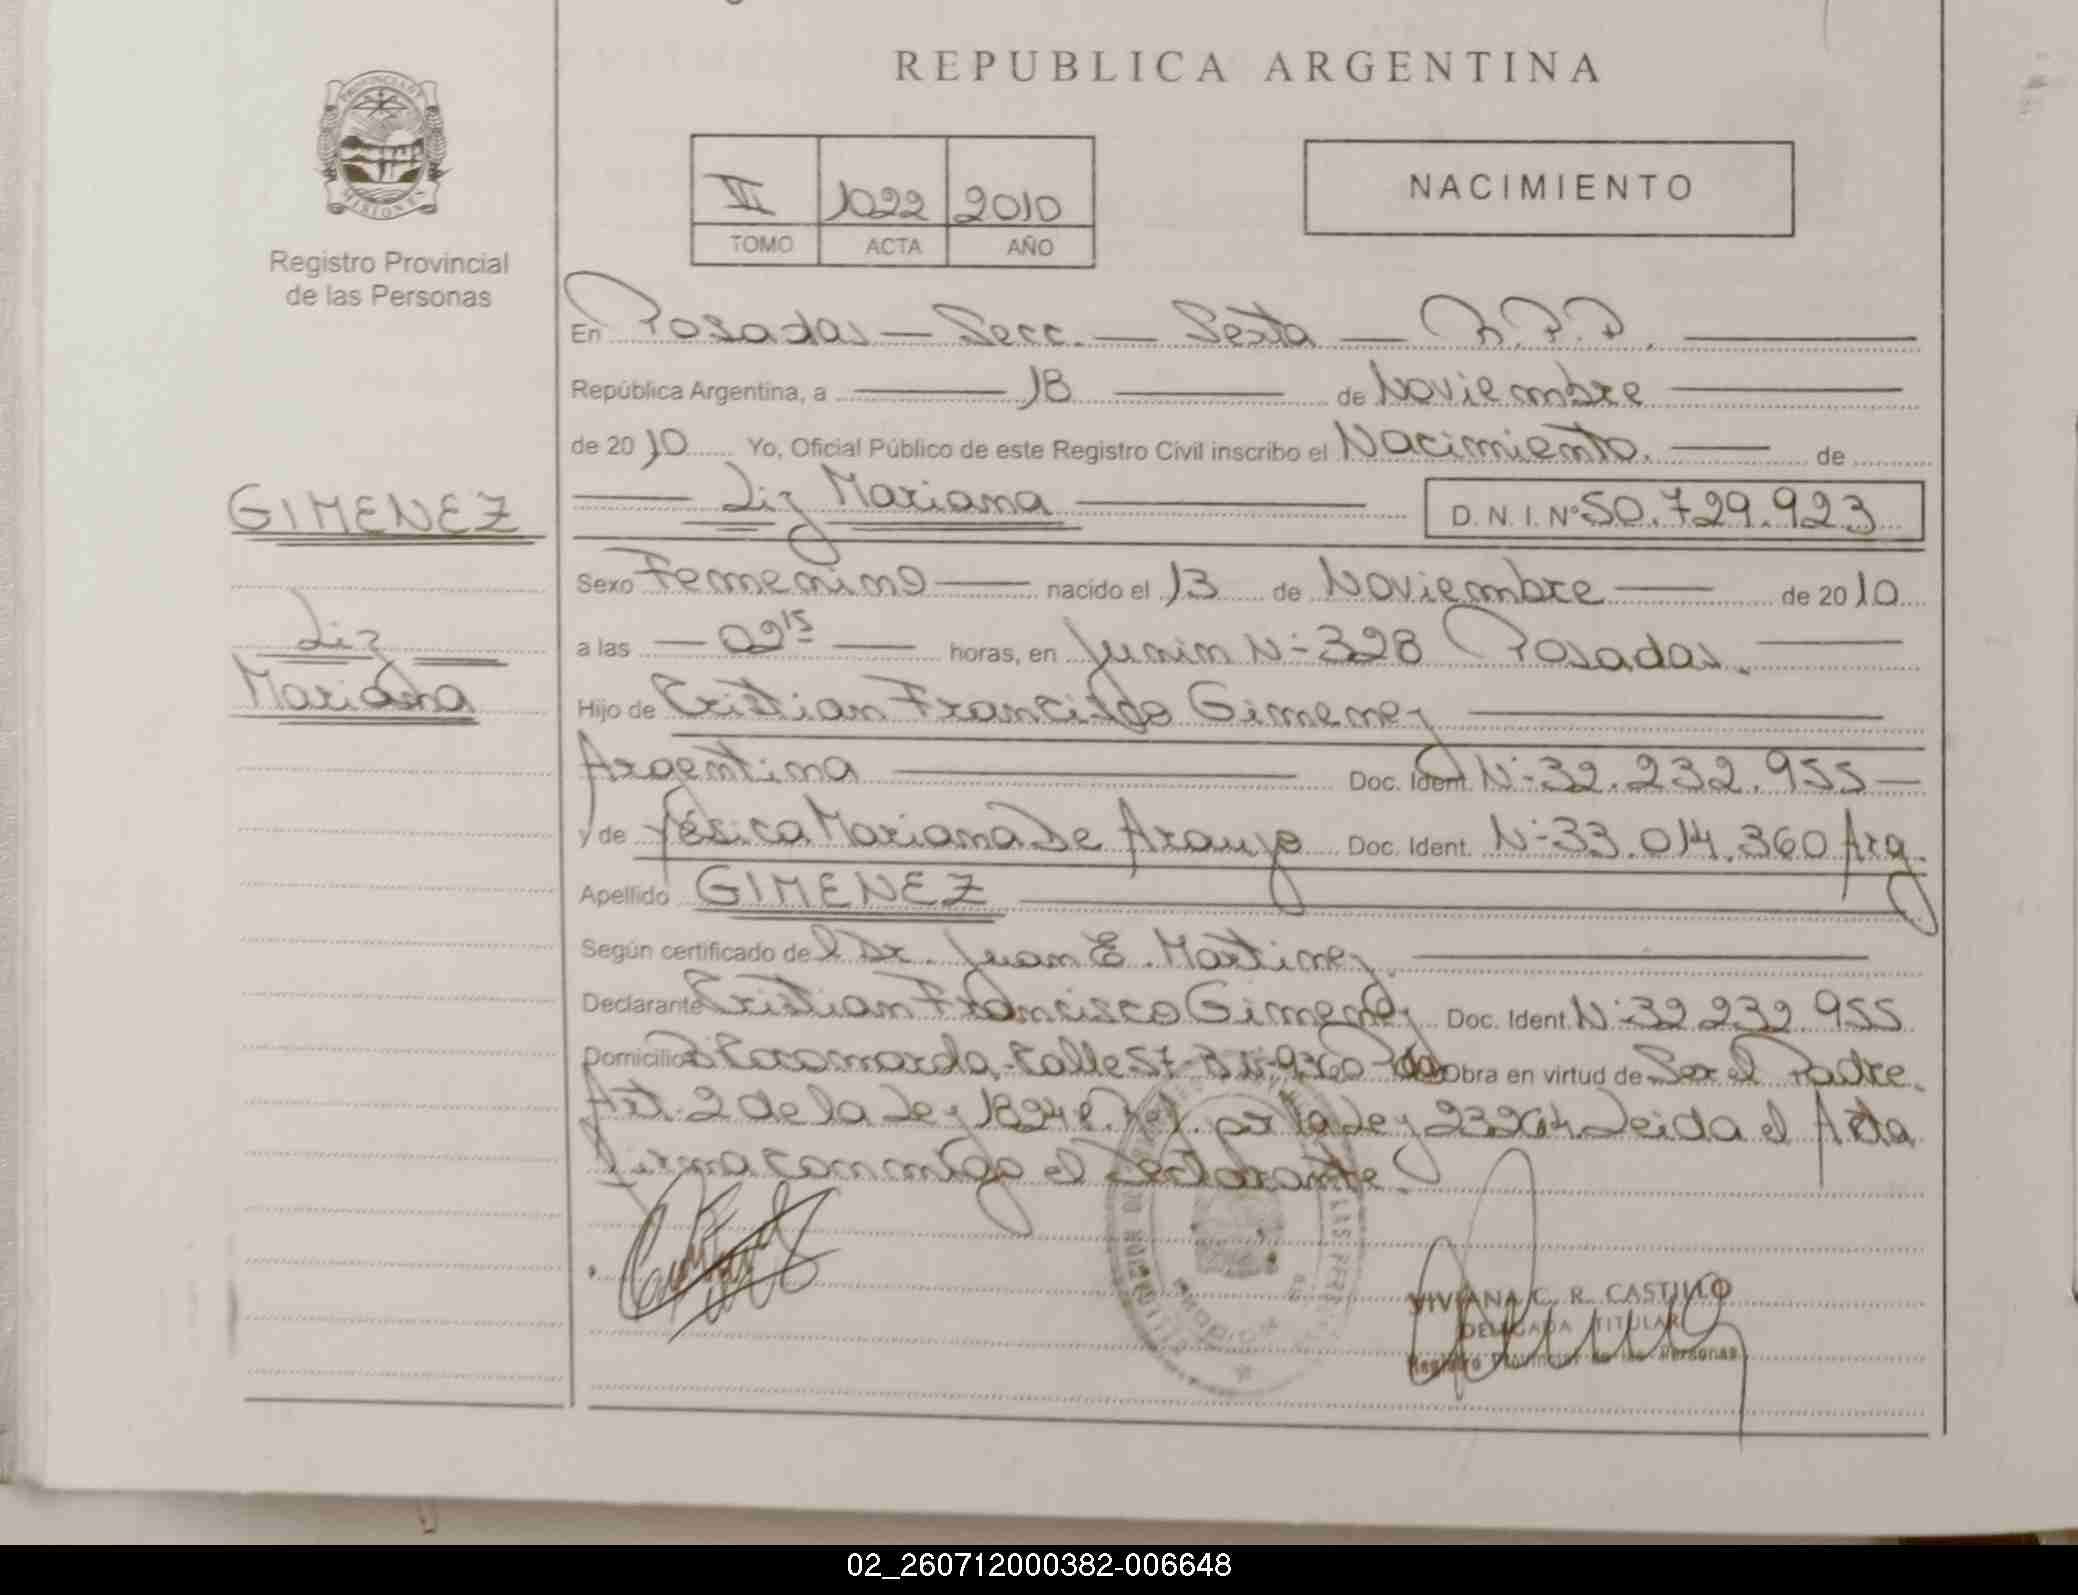 REPUBLICA ARGENTINA
PROVINCIA DE
MISIONES
Registro Provincial
de las Personas
VI 1022 2010
TOMO ACTA AÑO
NACIMIENTO
En Posadas — Secc. — Sexta — R.P.P.
República Argentina, a — 18 — de Noviembre
de 2010 Yo, Oficial Público de este Registro Civil inscribo el Nacimiento. — de
— Liz Mariana — D. N. I. Nº 50.729.923
GIMENEZ
Liz
Mariana
Sexo Femenino — nacido el 13 de Noviembre — de 2010
a las — 02 15 — horas, en Junin Nº 328 Posadas. —
Hijo de Cristian Gimenez —
Argentina — Doc. Ident. Nº 32.232.955 —
y de Yésica Mariana De Araujo Doc. Ident. Nº 33.014.360 Arg.
Apellido GIMENEZ —
Según certificado del Dr. Juan E. Martinez. —
Declarante Cristian Francisco Gimenez Doc. Ident. Nº 32.232.955
Domicilio Calle 57 Obra en virtud de Ser el Padre.
Art. 2 de la Ley 18248. por la Ley 23264. Leida el Acta
firma conmigo el Declarante.
VIVIANA C. R. CASTILLO
DELEGADA TITULAR
Registro Provincial de las Personas
02_260712000382-006648